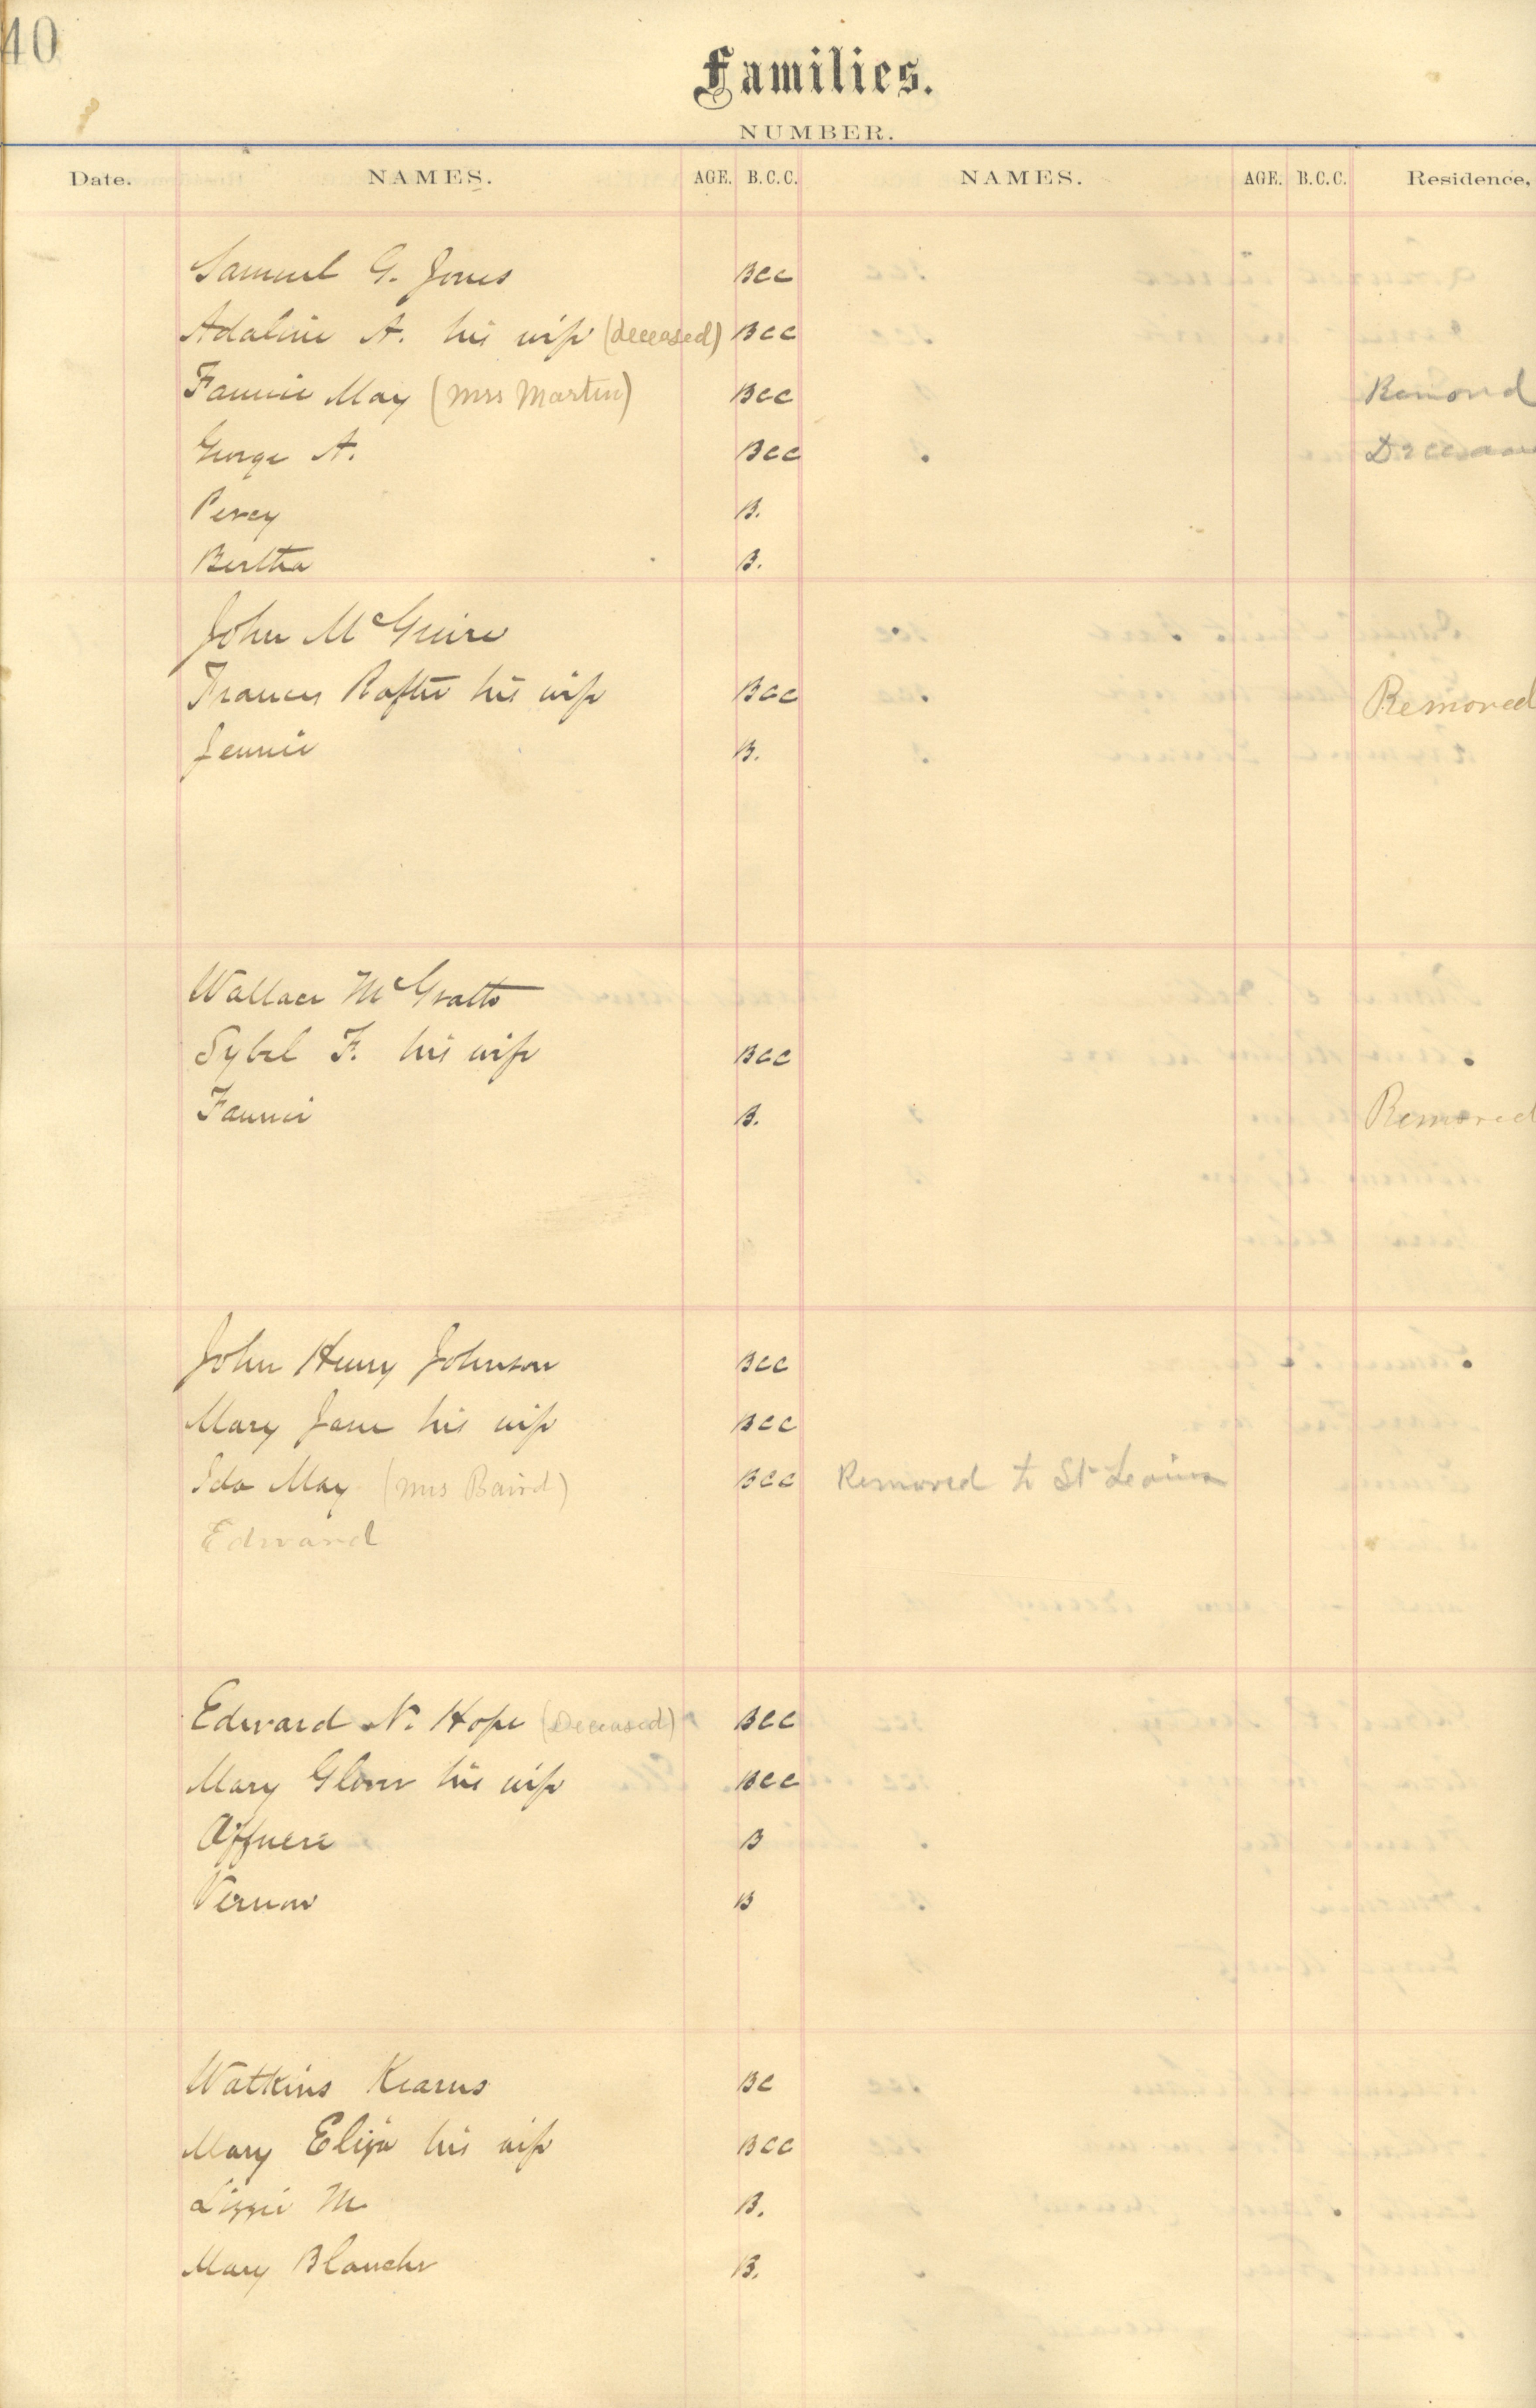 40
Families.
NUMBER.
Date. NAMES. AGE. B.C.C. NAMES. AGE. B.C.C. Residence,
Samuel G. Jones BCC
Adaline A. his wife (deceased) BCC
Fannie May (Mrs Martin) BCC Removed
George A. BCC
Percy B.
Bertha B.
John McGuire
Frances Rafter his wife BCC Removed
Jennie B.
Wallace McGratto
Sybel F. his wife BCC
Fannie B. Removed
John Henry Johnson BCC
Mary Jane his wife BCC
Ida May (Mrs Baird) BCC Removed to St Louis
Edward
Edward N. Hope (Deceased) BCC
Mary Glover his wife BCC
B
Vernon B
Watkins Kearns BC
Mary Eliza his wife BCC
Lizzie M B.
Mary Blanche B.